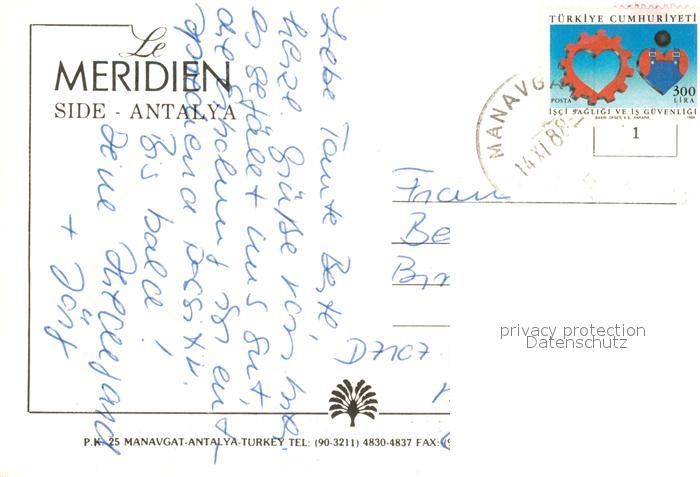 Le
MERIDIEN
SIDE - ANTALYA
Liebe Tante Berte,
herzl. Grüße von hier.
es gefällt uns gut,
die Erholung ist ent-
sprechend positiv.
Bis bald!
Deine Hildegard
+ Jörg
Frau
Be
D7107
P.K. 25 MANAVGAT-ANTALYA-TURKEY TEL: (90-3211) 4830-4837 FAX: (9
TÜRKİYE CUMHURİYETİ
300
POSTA LİRA
İŞÇİ SAĞLIĞI VE İŞ GÜVENLİĞİ
1
MANAVGAT
14 XI 88
privacy protection
Datenschutz